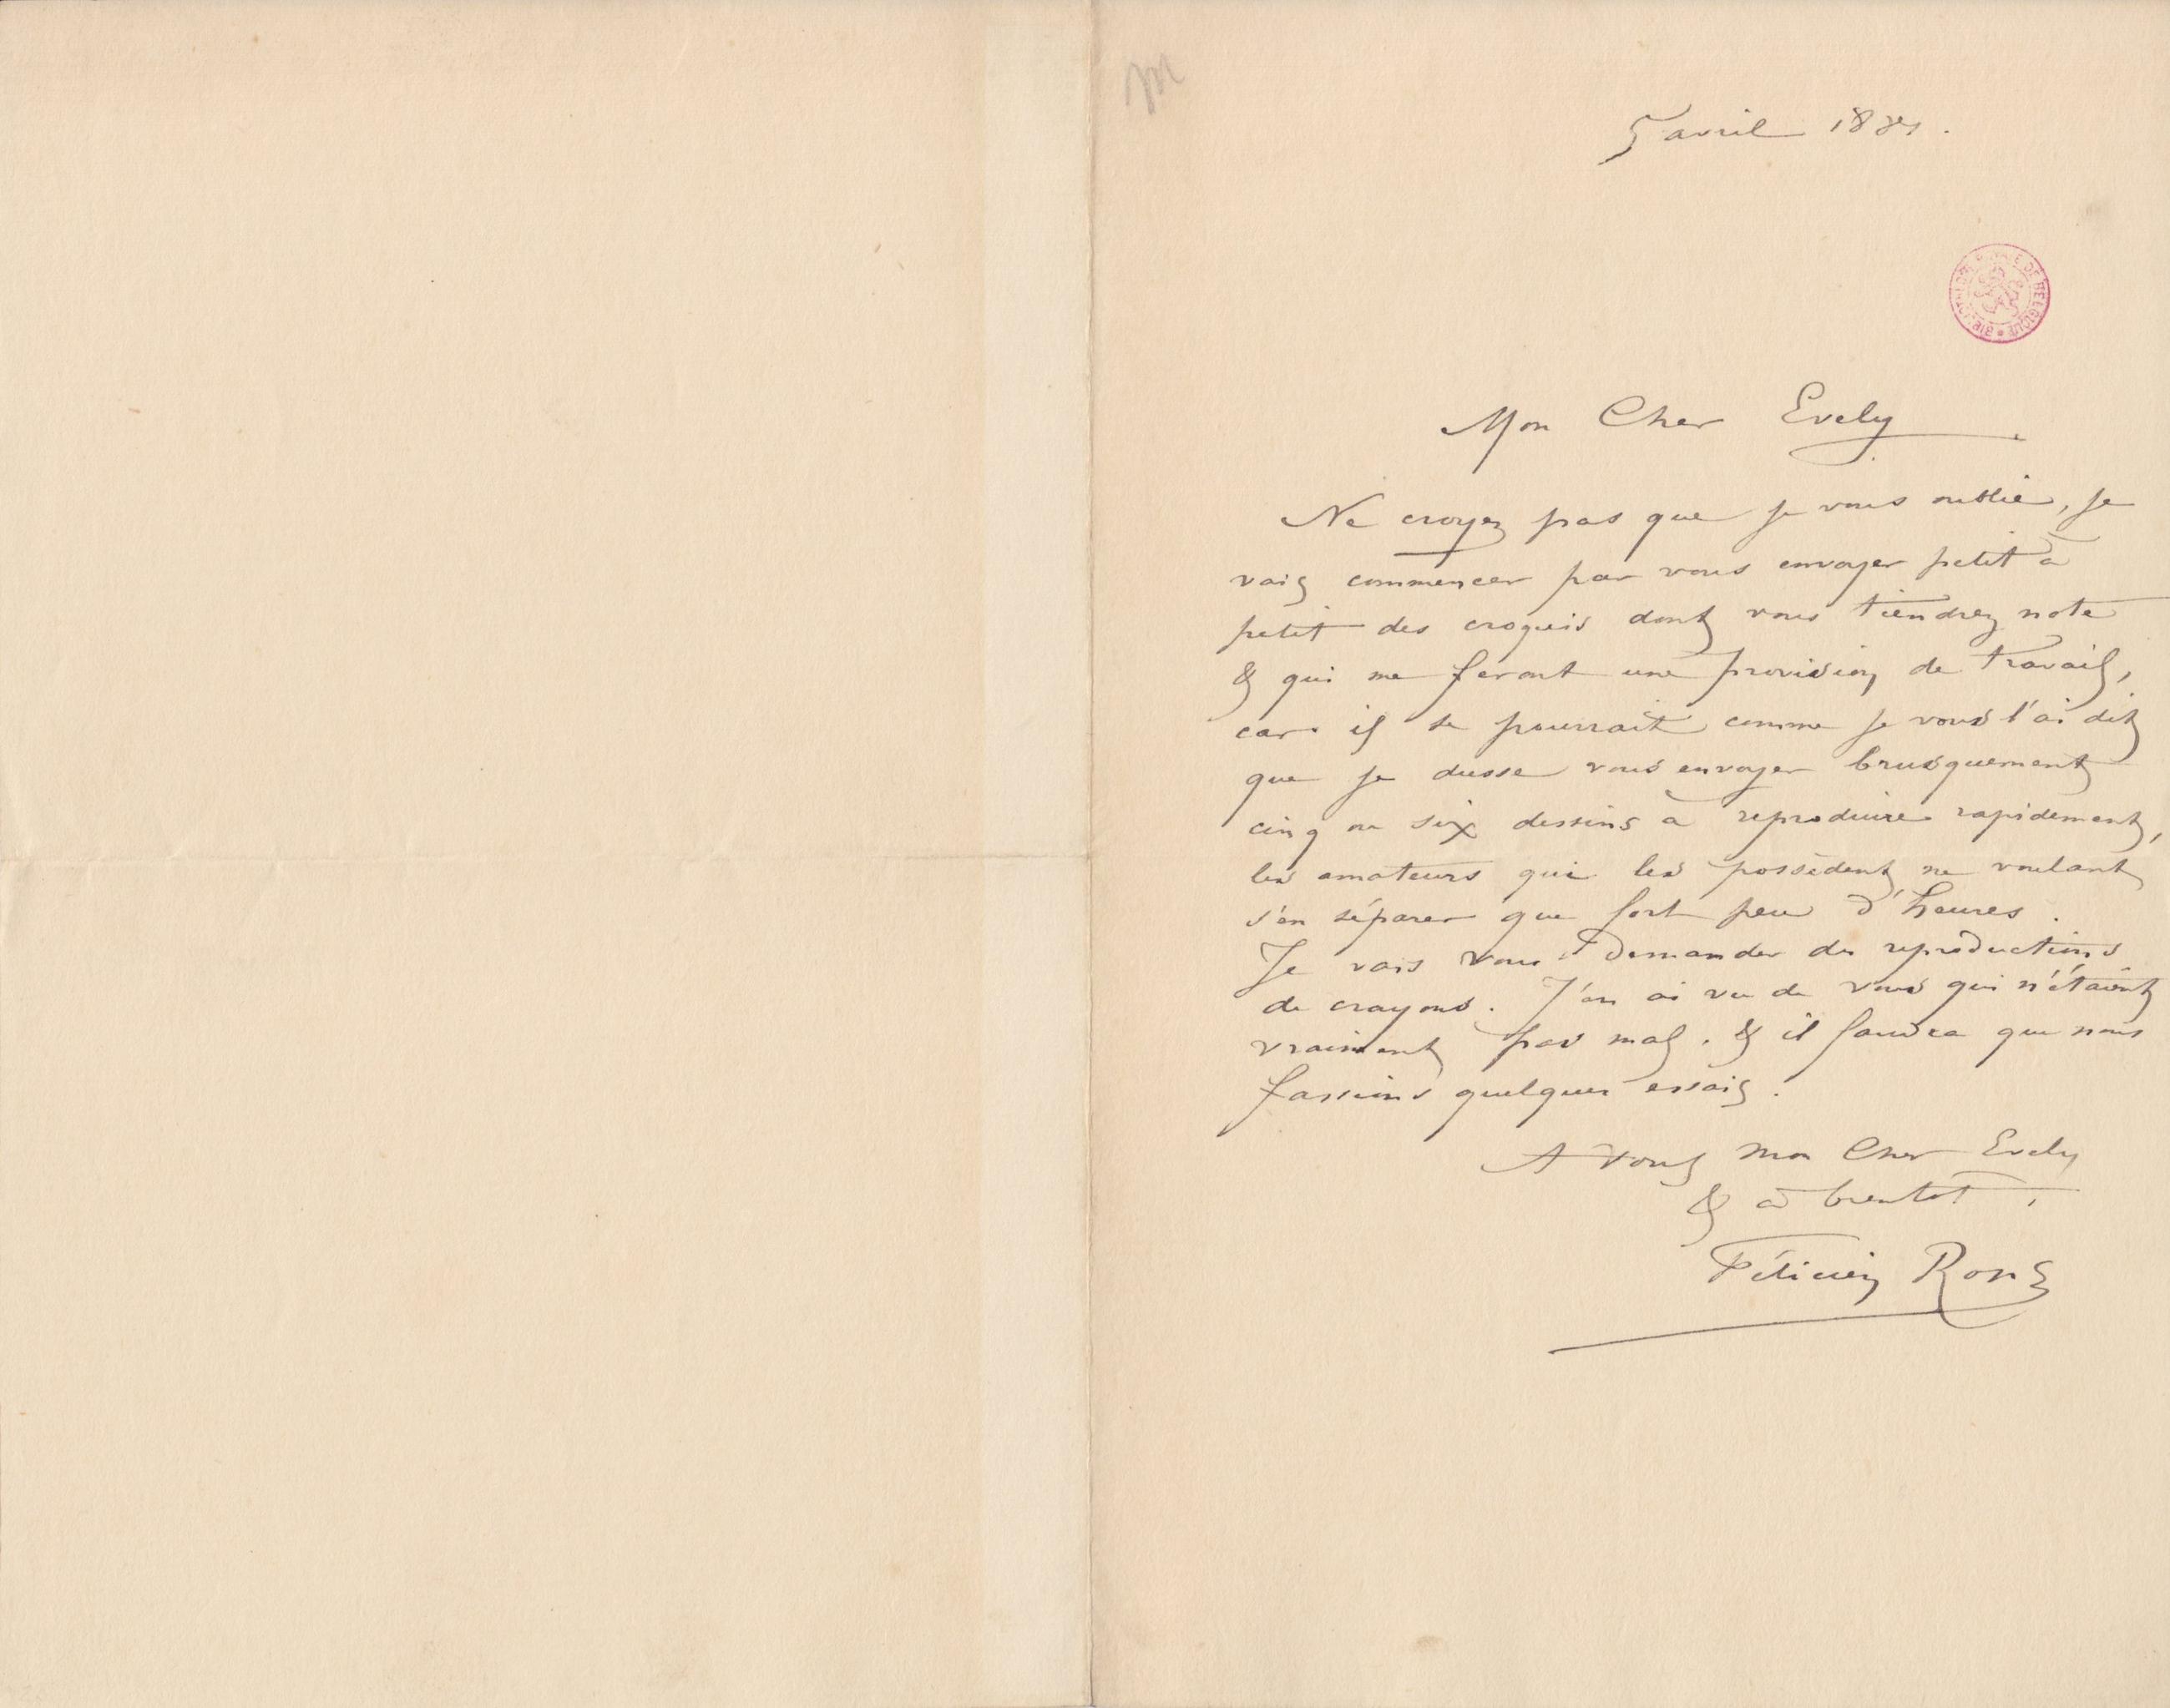 m
5 avril 188
Mon Cher Evely
Ne croyez pas que je vous oublie, je
vais commencer par vous envoyer petit à
petit des croquis dont vous tiendrez note
& qui me feront une provision de travail,
car il se pourrait comme je vous l'ai dit
que je dusse vous envoyer brusquement
cinq ou six dessins à reproduire rapidement,
les amateurs qui les possèdent, ne voulant
s'en séparer que fort peu d'heures.
Je vais vous demander des reproductions
de crayons. J'en ai vu de vous qui n'étaient
vraiment pas mal. & il faudra que nous
fassions quelques essais.
A vous mon Cher Evely
& à bientot.
Félicien Rops
BIBLIOTHÈQUE ROYALE DE BELGIQUE